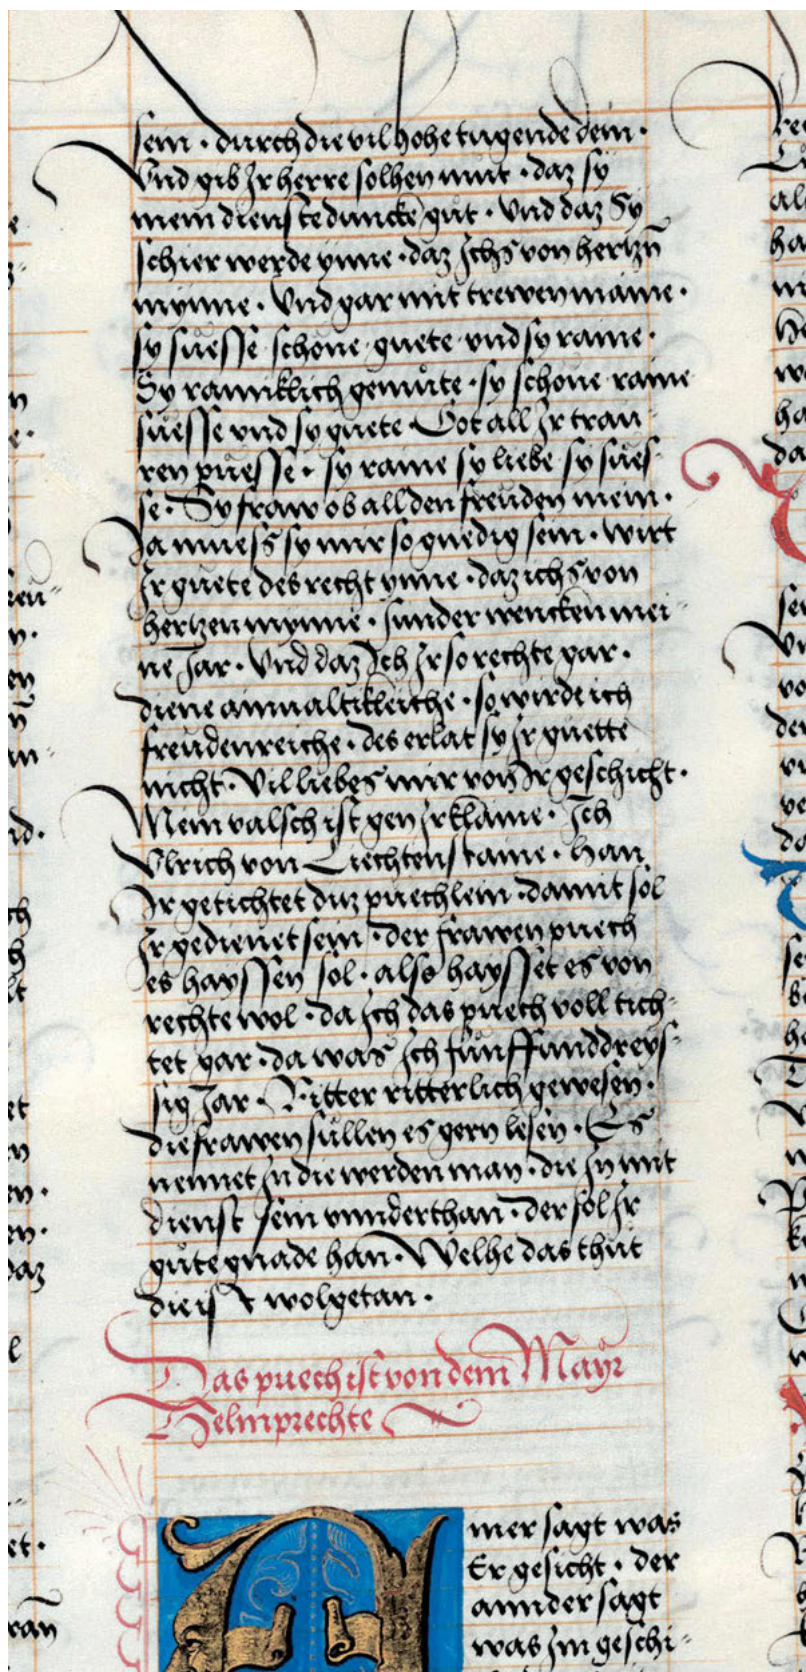 sein · durch die vil hohe tugende dein ·
Vnd gib Jr herre solhen mut · daz sy
mein dienst eduncke gůt · Vnd daz Sy
schier werde ynne · daz Jchs von hertzn̄
mynne · Vnd gar mit trewen maine ·
sy sůesse schöne guete vnd sy raine ·
Sy rainiklich gemůte · sy schöne raine
sůesse vnd sy guete · Got all Jr trau
ren půesse · sy raine sy liebe sy sůes
se · Sy fraw ob all den freuden mein ·
Ja muess sy mir so gnedig sein · wirt
Jr guete des recht ynne · daz ichs von
hertzen mynne · sunder wencken mei
ne Jar · Vnd daz Jch Jr so rechte gar ·
diene ainualtikleiche · so wirde ich
freudenreiche · des erlat sy Jr guette
nicht · Vil liebes mir von Jr geschicht ·
Mein valsch ist gen Jr klaine · Jch
Vlrich von Liechtenstaine · Han
Jr getichtet ditz puechlein · damit sol
Jr gedienet sein · der frawen puech
es hayssen sol · also haysset es von
rechte wol · da Jch das puech voll tich
tet gar · da was Jch fünffunddreys
sig Jar · Ritter ritterlich gewesen ·
die frawen süllen es gern lesen · Es
nennet Jn die werden man · die Jn mit
dienst sein vnnderthan · der sol Jr
gůte gnade han · Welhe das thůt
die ist wolgetan ·
Das puech ist von dem Mayr
Helmprechte
Ainer sagt was
Er gesicht · der
annder sagt
was Jm geschi